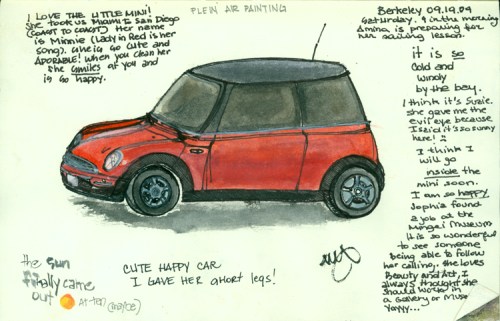 I LOVE THE LITTLE MINI!
She took us MIAMI to SAN DIEGO
(COAST TO COAST) Her name
is Minnie (Lady in Red is her
song). She is so cute and
ADORABLE! When you clean her
she smiles at you and
is so happy.
PLEIN AIR PAINTING
Berkeley 09.19.09
Saturday. 9 in the morning
her sailing lesson.
it is so
Cold and
windy
by the bay.
I think it's Suzie.
she gave me the
evil eye because
I said it's so sunny
here!
I think I
will go
inside the
mini soon.
I am so happy
Sophia found
a job at the
Mingei Museum
It is so wonderful
to see someone
being able to follow
her calling. She loves
Beauty and Art, I
always thought she
should work in
a Gallery or Muse
Yayyy...
the sun
finally came
out
AT 1:00 (maybe)
CUTE HAPPY CAR
I GAVE HER short legs!